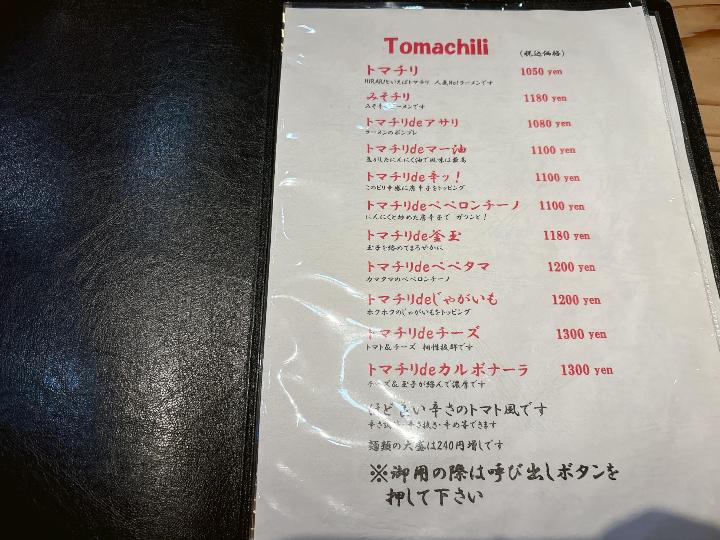 Tomachili (税込価格)
トマチリ 1050 yen
HIRARIといえばトマチリ 人気No1ラーメンです
みそチリ 1180 yen
ラーメンです
トマチリdeアサリ 1080 yen
ラーメンのボンゴレ
トマチリdeマー油 1100 yen
焦がしたにんにく油で風味は最高
トマチリde辛ッ! 1100 yen
このピリ辛感に唐辛子をトッピング
トマチリdeペペロンチーノ 1100 yen
にんにくと炒めた唐辛子で ガツンと!
トマチリde釜玉 1180 yen
玉子を絡めてまろやかに
トマチリdeペペタマ 1200 yen
カマタマのペペロンチーノ
トマチリdeじゃがいも 1200 yen
ホクホクのじゃがいもをトッピング
トマチリdeチーズ 1300 yen
トマト&チーズ 相性抜群です
トマチリdeカルボナーラ 1300 yen
チーズ&玉子が絡んで濃厚です
ほど良い辛さのトマト風です
辛さ ・辛さ抜き・辛め等できます
麺類の大盛は240円増しです
※御用の際は呼び出しボタンを
押して下さい